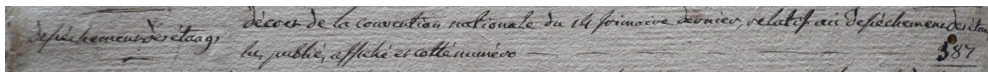 depéchement des étangs
décret de la convention nationale du 14 frimaire dernier, relatif au depéchement des étan
lu, publié, affiché et cotté numéro 387